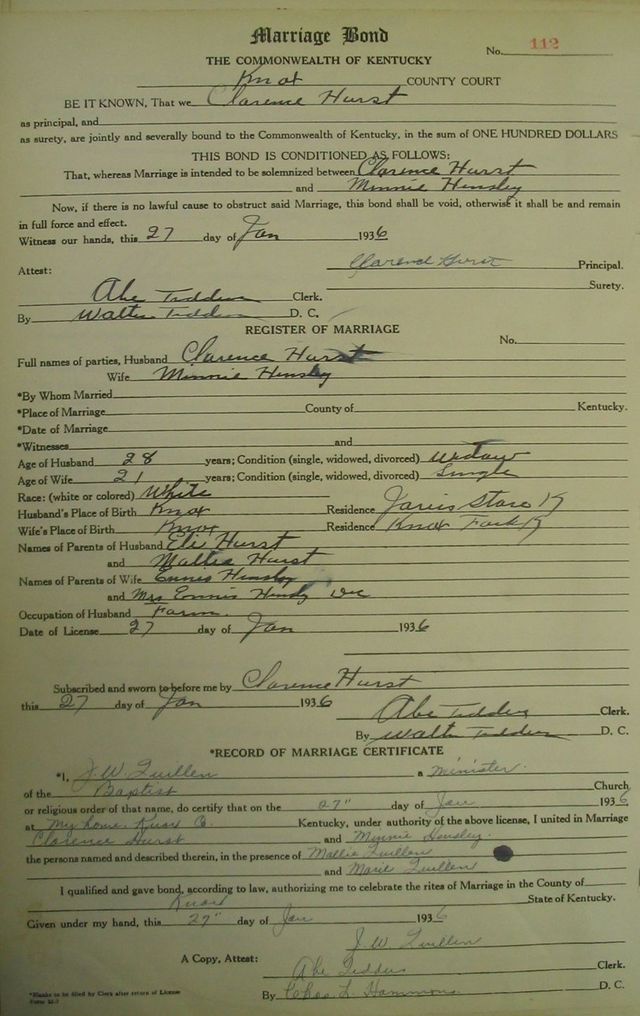 Marriage Bond
No. 112
THE COMMONWEALTH OF KENTUCKY
Knox COUNTY COURT
BE IT KNOWN, That we Clarence Hurst
as principal, and
as surety, are jointly and severally bound to the Commonwealth of Kentucky, in the sum of ONE HUNDRED DOLLARS
THIS BOND IS CONDITIONED AS FOLLOWS:
That, whereas Marriage is intended to be solemnized between Clarence Hurst
and Minnie Hensley
Now, if there is no lawful cause to obstruct said Marriage, this bond shall be void, otherwise it shall be and remain
in full force and effect.
Witness our hands, this 27 day of Jan 1936
Clarence Hurst Principal.
Attest:
Surety.
Abe Clerk.
By Walter D. C.
REGISTER OF MARRIAGE
No.
Full names of parties, Husband Clarence Hurst
Wife Minnie Hensley
*By Whom Married
*Place of Marriage County of Kentucky.
*Date of Marriage
*Witnesses and
Age of Husband 28 years; Condition (single, widowed, divorced)
Age of Wife 21 years; Condition (single, widowed, divorced) Single
Race: (white or colored) White
Husband's Place of Birth Knox Residence Jarvis Store Ky
Wife's Place of Birth Knox Residence Knox Fork Ky
Names of Parents of Husband Eli Hurst
and Mattie Hurst
Names of Parents of Wife Ennis Hensley
and Mrs Ennis Hensly Dec
Occupation of Husband Farm.
Date of License 27 day of Jan 1936
Subscribed and sworn to before me by Clarence Hurst
this 27 day of Jan 1936
Abe Clerk.
By Walter D. C.
*RECORD OF MARRIAGE CERTIFICATE
*I, J. W. Quillen a minister.
of the Baptist Church
or religious order of that name, do certify that on the 27" day of Jan 1936
at My home. Knox Co. Kentucky, under authority of the above license, I united in Marriage
Clarence Hurst and Minnie Hensley.
the persons named and described therein, in the presence of Mallie Quillen
and Marie Quillen
I qualified and gave bond, according to law, authorizing me to celebrate the rites of Marriage in the County of
Knox State of Kentucky.
Given under my hand, this 27" day of Jan 1936
J. W. Quillen
A Copy, Attest:
Abe Clerk.
By Chas. L. Hammons D. C.
*Blanks to be filled by Clerk after return of License